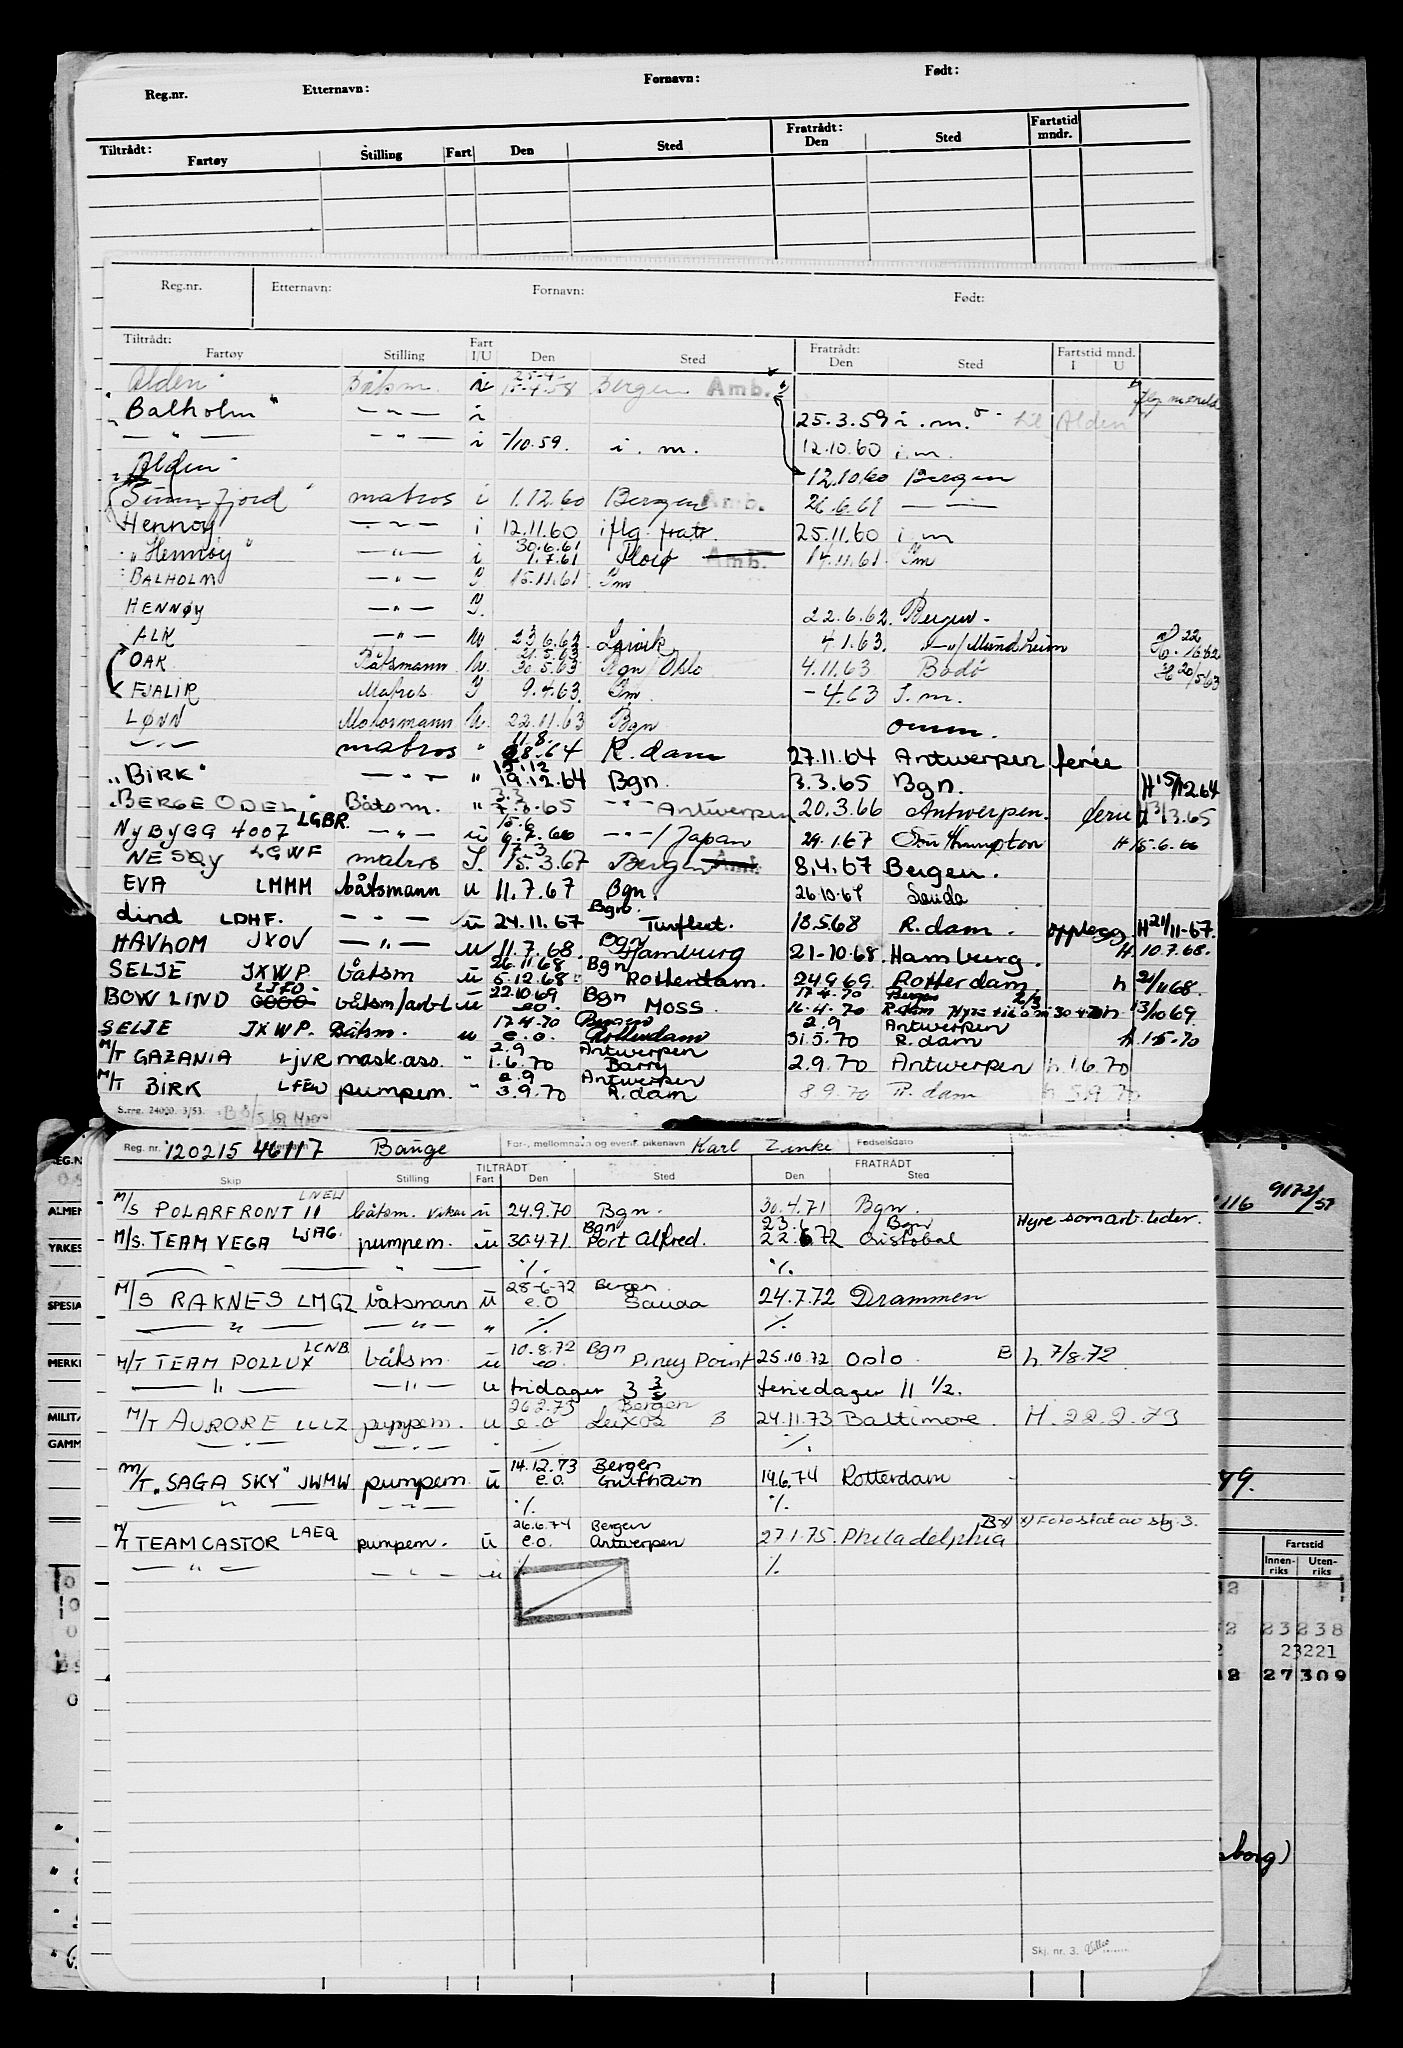 Reg.nr. Etternavn: Fornavn: Født:
Tiltrådt: Fratrådt: Fartstid mndr.
Fartøy Stilling Fart Den Sted Den Sted
Reg.nr. Etternavn: Fornavn: Født:
Tiltrådt: Fart Fratrådt: Fartstid mnd.
Fartøy Stilling I/U Den Sted Den Sted I U
Alden" Båtsm. i 25-4- 15-4-58 Bergen Amb.
"Balholm" — " — i 25.3.59 i.m. til Alden
— " — — " — i -/10.59. i.m. 12.10.60 i.m.
"Alden" 12.10.60 Bergen
"Sunnfjord" matros i 1.12.60 Bergen Amb. 26.6.61 — " —
Hennøy — " — i 12.11.60 iflg. fratr. 25.11.60 i m
"Hennøy" — " — i 30.6.61 1.7.61 Florø Amb. 14.11.61 I m
BALHOLM — " — I 15.11.61 I m
HENNØY — " — I. 22.6.62. Bergen.
ALK — " — U. 23.6.62 Larvik 4.1.63. — " —/Mundheim
OAK Båtsmann U. 21.5.63 30.5.63 Bgn/Oslo 4.11.63 Bodö H 20/5 63
FJALIR Matros I 9.4.63. I m. -4.63 I.m.
LØNN Motormann U. 22.11.63 Bgn omm.
— " — matros " 11.8. 28-64 R.dam 27.11.64 Antwerpen ferie
"BIRK" — " — " 15.12 19.12.64 Bgn. 3.3.65 Bgn. H 15/12.64
"BERGE ODEL" Båtsm. " 3.3 7.3.65 — " — Antwerpen 20.3.66 Antwerpen. ferie H 3/3.65
NyByGG 4007 LGBR. — " — u 15.6 6.7.66 — " — / Japan 24.1.67 H 15-6-66
NESØY LGWF matros I. 17.3 15.3.67 Bergen Amb. 8.4.67 Bergen.
EVA LMMM båtsmann u 11.7.67 Bgn. 26.10.67 Sauda
dind LDHF. — " — u 24.11.67 Bgn. 18.5.68 R.dam. opplegg H 21/11-67.
HAVHOM JXOV — " — u 11.7.68. Bgn Hamburg 21-10-68. Hamburg. H. 10.7.68.
SELJE JXWP. båtsm u 26.11.68 5.12.68 Bgn Rotterdam. 24.9.69 Rotterdam h 21/11 68.
BOW LIND LJFO. båtsm/arb.l u 22.10.69 e.o. Bgn MOSS 17-4-70 16-4-70 Bergen R.dam h 13/10 69.
SELJE JXWP. Båtsm. u 17-4-70 e.o. Bergen Rotterdam 2.9 31.5.70 Antwerpen R.dam h. 1-5-70
M/T GAZANIA LJVR mask.ass. " 2.9 1.6.70 Antwerpen Barry 2.9.70 Antwerpen h 1.6.70
M/T BIRK LFEW pumpem. " 2.9 3.9.70 Antwerpen R.dam 8.9.70 R.dam h 3.9.70
S.reg. 24020. 3/53.
Reg. nr. 120215 46117 Bauge For-, mellomnavn og event. pikenavn Karl Zinke Fødselsdato
TILTRÅDT FRATRÅDT
Skip Stilling Fart Den Sted Den Sted
M/S POLARFRONT II LNEW båtsm. vikar u 24.9.70 Bgn. 30.4.71 Bgn. Hyre som arb.leder.
M/S. TEAM VEGA LJAG. pumpem. u 30.4.71. Bgn Port Alfred. 23.6 22.6.72 Bgn Cristobal
— " — %. %.
M/S RAKNES LMGZ båtsmann u 28-6-72 e.o Bergen Sauda 24.7.72 Drammen
— " — — " — " % %
M/T TEAM POLLUX LCNB båtsm. u 10.8.72 eo. Bgn Piney Point 25.10.72 Oslo. B h 7/8.72
— " — — " — u fridager 3 3/5 feriedager 11 1/2.
M/T AURORE LLLZ pumpem. u 26.2.73 e.o Bergen Leixos B 24.11.73 Baltimore. H. 22.2.73
— " — — " — % %.
M/T "SAGA SKY" JWMW pumpem u 14.12.73 e.o. Bergen Gulfhavn 19.6.74 Rotterdam
— " — — " — % %.
M/T TEAM CASTOR LAEQ pumpem. u 26.6.74 e.o. Bergen Antwerpen 27.1.75. Philadelphia B x) x) Fotostat av skj. 3.
— " — — " — u % %.
Skj. nr. 3.
REG.N
ALMEN
YRKES
SPESIA
MERKI
MILITÆ
GAMM
116 9172/57
49.
Fartstid
Innen-riks Uten-riks
23238
23221
27309
sborg)